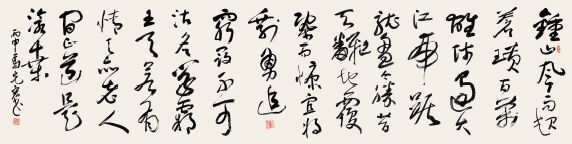 鍾山风雨起
蒼黄百萬
雄师过大
江虎踞
龍盘今勝昔
天翻地覆
慨而慷宜将
剩勇追
窮寇不可
沽名学霸
王天若有
情天亦老人
间正道是
滄桑
丙申